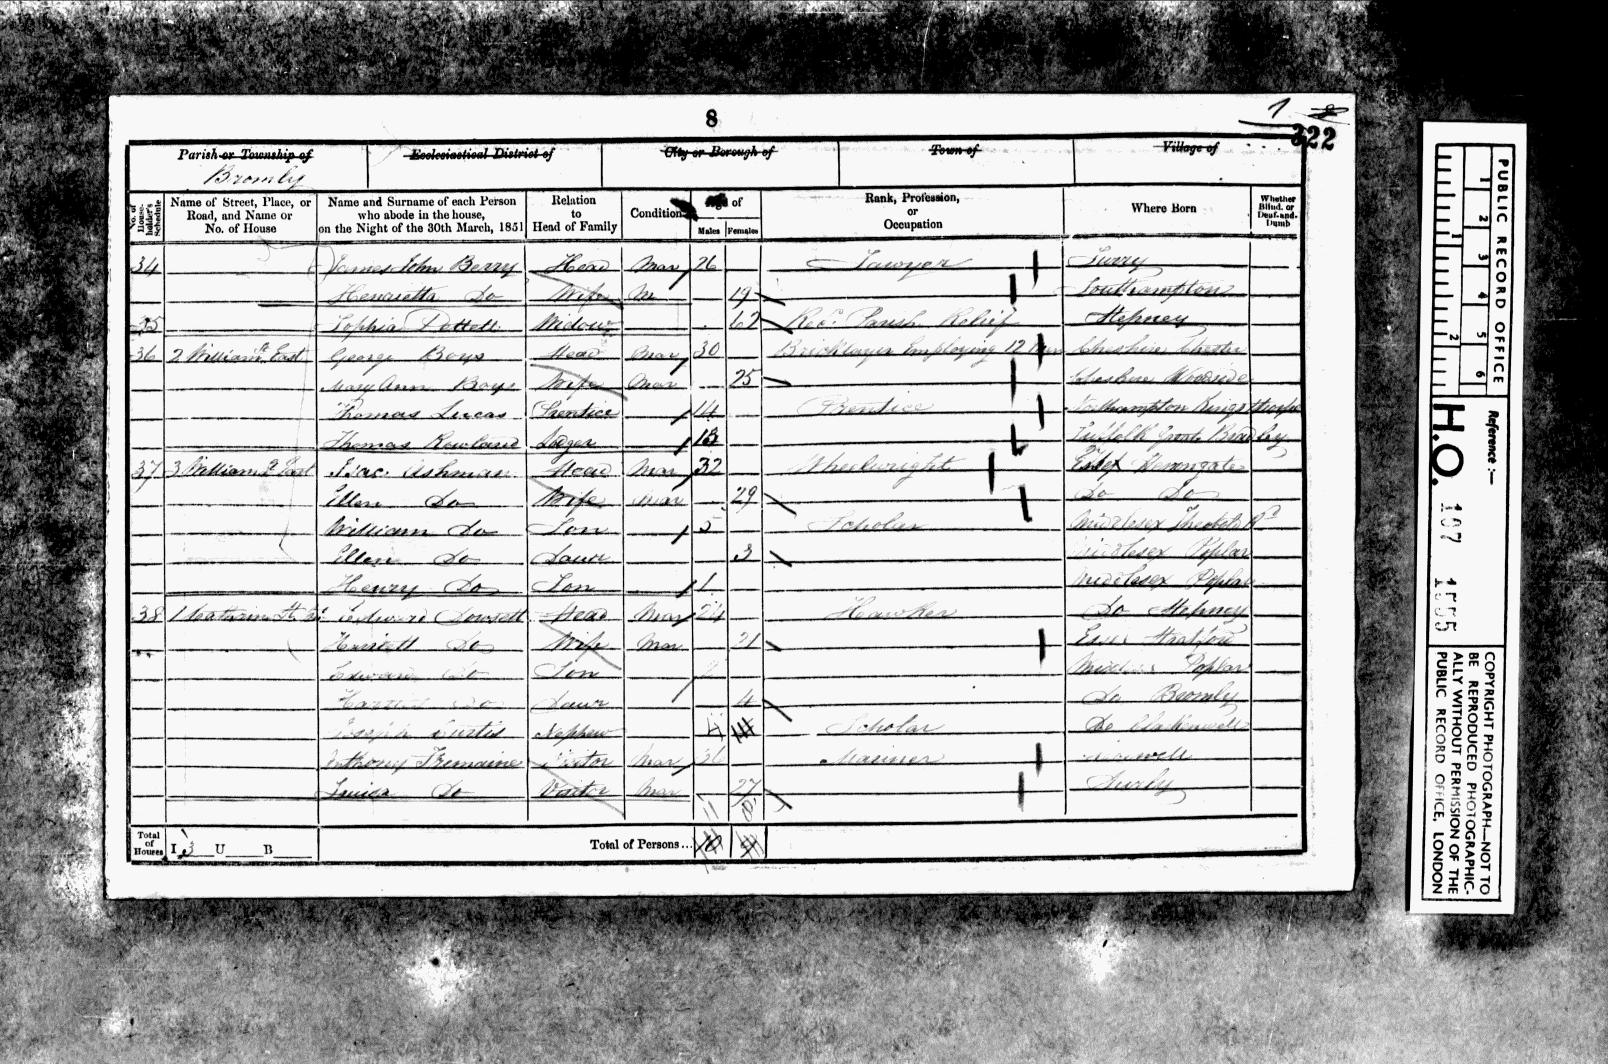 8
7 8
322
Parish or Township of Ecclesiastical District of City or Borough of Town of Village of
Bromly
No. of House-holder's Schedule Name of Street, Place, or Road, and Name or No. of House Name and Surname of each Person who abode in the house, on the Night of the 30th March, 1851 Relation to Head of Family Condition Age of Males Females Rank, Profession, or Occupation Where Born Whether Blind, or Deaf-and-Dumb
34 James John Berry Head Mar 26 Sawyer Surry
Henrietta Do Wife M 19 Southampton
35 Sophia Pottell Widow 62 Rec. Parish Relief Stepney
36 2 William St East George Boys Head Mar 30 Bricklayer Employing 12 Men Cheshire Chester
Mary Ann Boys Wife Mar 25 Cheshire Woodside
Thomas Lucas Prentice 14 Prentice Northampton Kingsthorpe
Thomas Rowland Lodger 13 Suffolk Great Bradley
37 3 William St East Isac Ashman Head Mar 32 Wheelwright Essex
Ellen Do Wife Mar 29 Do Do
William Do Son 5 Scholar Middlesex
Ellen Do Daur 3 Middlesex Poplar
Henry Do Son 1 Middlesex Poplar
38 1 Edward Dowsett Head Mar 24 Hawker Do Stepney
Harriett Do Wife Mar 21 Essex Stratford
Edward Do Son 2 Poplar
Harriet Do Daur 4 Do Bromly
Joseph Curtis Nephew 4 Scholar Do Clerkenwell
Anthony Tremaine Visitor Mar 36 Mariner
Louisa Do Visitor Mar 27 Surly
Total of Houses I 3 U B Total of Persons...
PUBLIC RECORD OFFICE
1 2 3 4 5 6
1 2
Reference :—
H.O. 107 1555
COPYRIGHT PHOTOGRAPH—NOT TO BE REPRODUCED PHOTOGRAPHICALLY WITHOUT PERMISSION OF THE PUBLIC RECORD OFFICE, LONDON